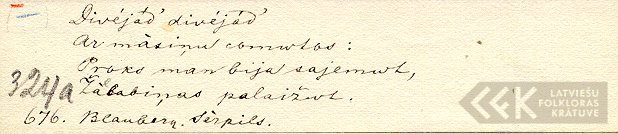 Divējād' divējād'
Ar māsiņu comwtos:
Proks man bija sajemwt,
324a Žābabiņas palaižwt.
676. Blauberg. Sērpils.
LATVIEŠU
FOLKLORAS
KRĀTUVE